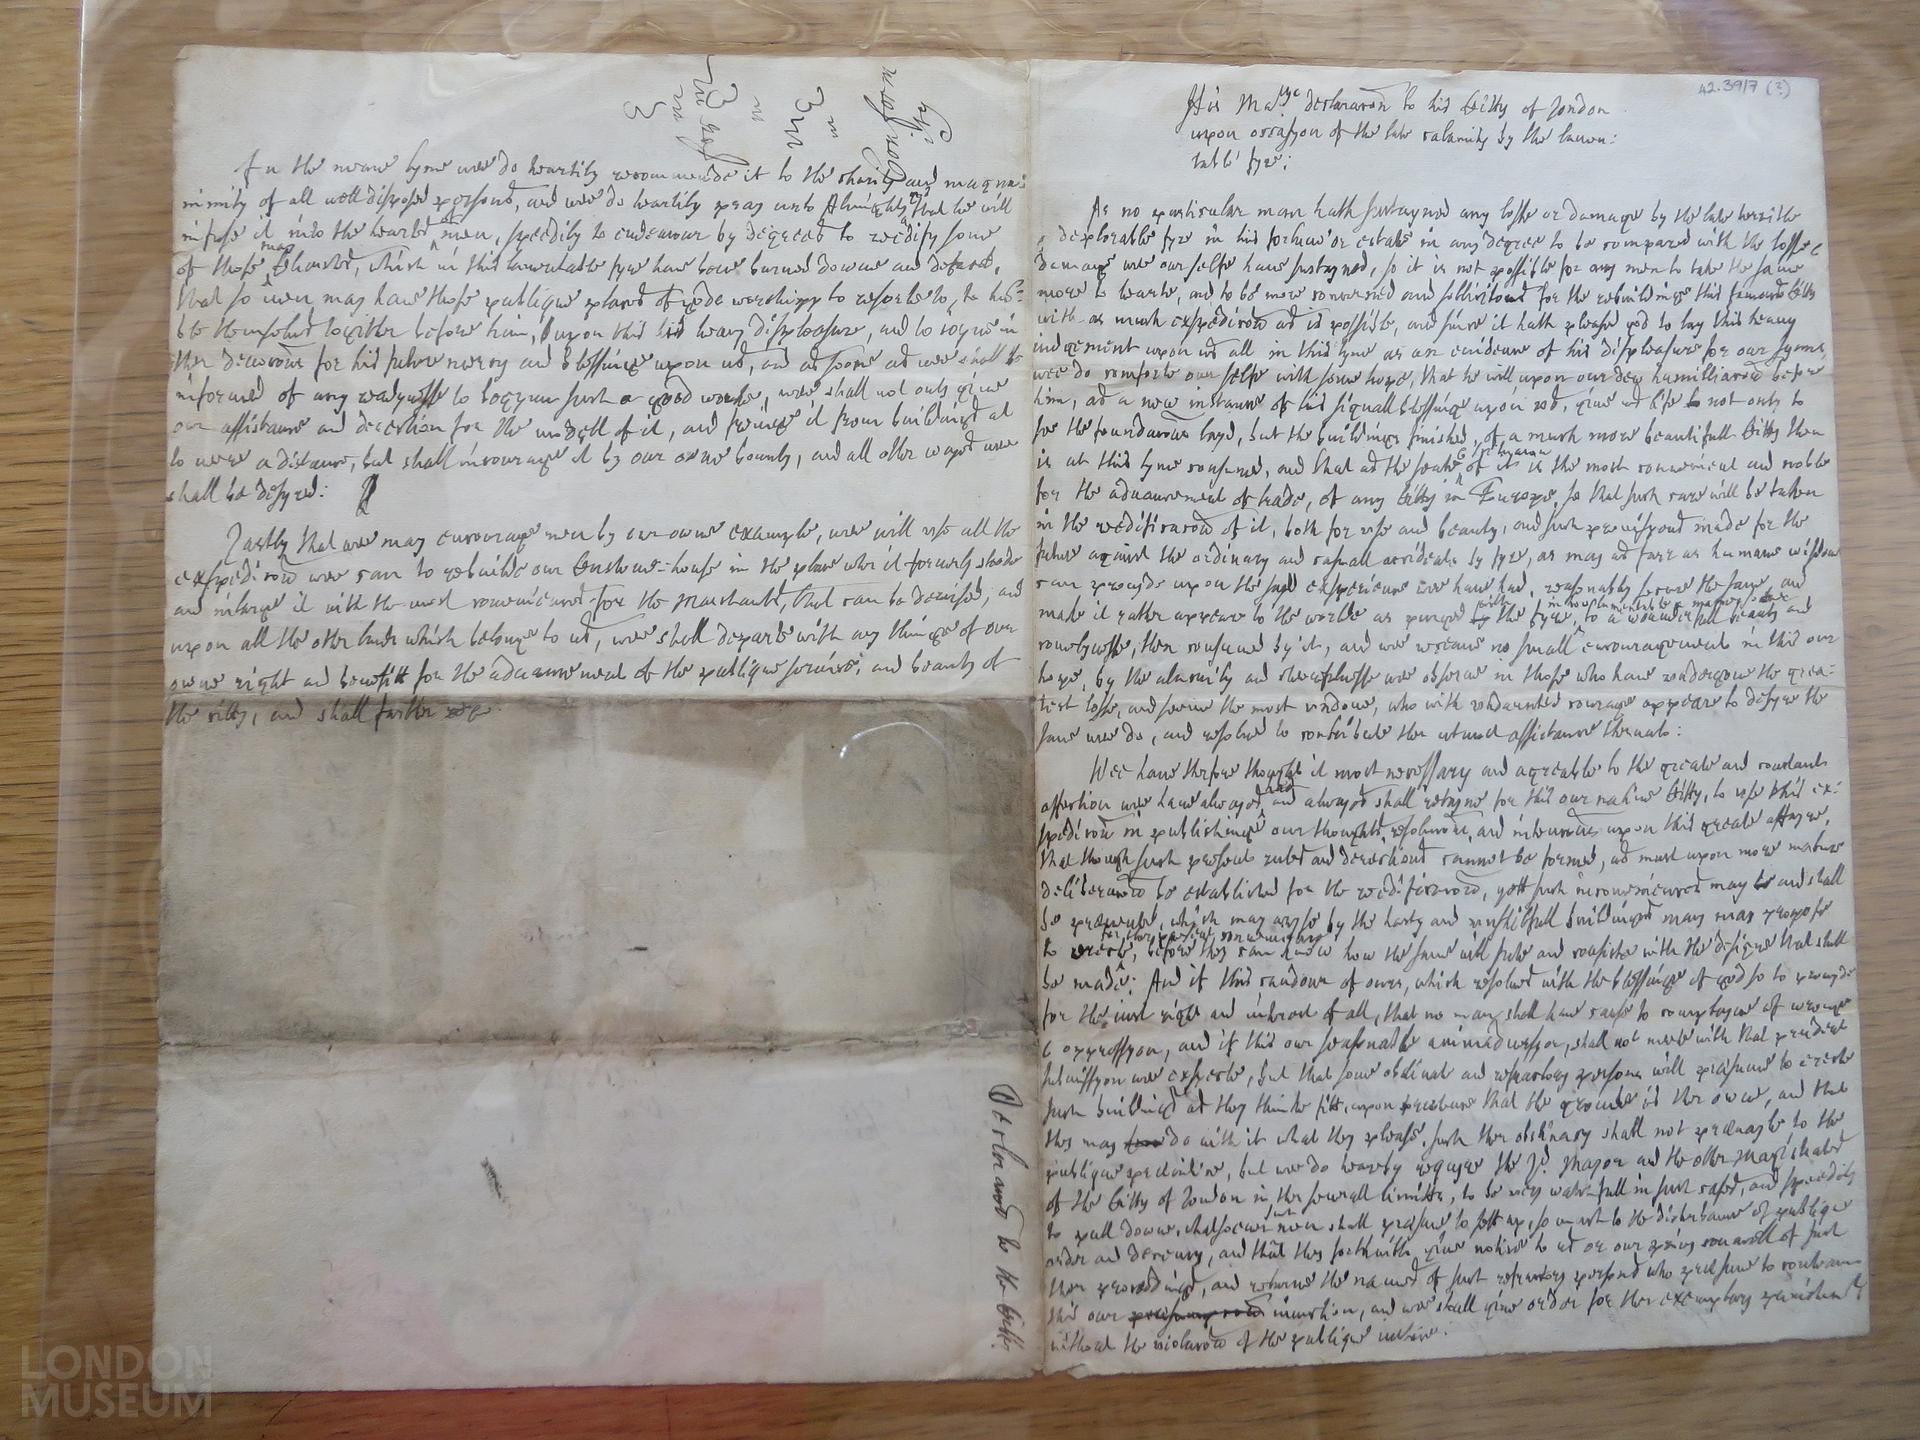 42.39/7 (2)
His Ma.tye declaracon to his Citty of London
upon occasyon of the late calamity by the lamen:
table fyre:
As no particular man hath sustayned any losse or damage by the late terrible
& deplorable fyre in his fortune or estate in any degree to be compared with the losse &
damage wee our selfe have sustayned, so it is not possible for any man to take the same
more to hearte, and to be more concerned and sollicitous for the rebuildinge this famous Citty
with as much expedicon as is possible, and since it hath pleased god to lay this heavy
iudgement upon us all in this tyme as an evidence of his displeasure for our synns,
wee do comforte our selfe with some hope, that he will upon our dew humilliacon before
him, as a new instance of his signall blessinge upon us, give us life to not only to
see the foundacons layd, but the buildinge finished, of a much more beautifull Citty then
is at this tyme consumed, and that as the seate & scituacon of it is the most convenient and noble
for the advancement of trade, of any Citty in Europe, so that such care will be taken
in the reedificacon of it, both for use and beauty, and such provisyons made for the
future against the ordinary and casuall accidents by fyre, as may as farr as humane wisdom
can provyde upon the sadd experience wee have had, reasonably secure the same, and
make it rather appeare to the worlde as purged with the fyre, to a wonderfull beauty and
comelynesse, then consumed by it, and wee receave no small encouragement in this our
hope, by the alacrity and cheerfulnesse wee observe in those who have undergone the grea-
test losse, and seeme the most undone, who with undaunted courage appeare to desyre the
same wee do, and resolve to contribute ther utmost assistance therunto:
Wee have therfore thought it most necessary and agreable to the greate and constant
affection wee have alwayes and alwayes shall retayne for this our native Citty, to use this ex-
pedicon in publishinge our thoughts, resolucons, and intencons upon this greate affayre,
that though such present rules and direccons cannot be formed, as must upon more mature
deliberacon be established for the reedificacon, yett such inconveniences may be and shall
be prevented, which may aryse by the hasty and unskilfull buildings many may propose
to erecte, for ther present conveniency before they can know how the same will sute and consiste with the designe that shall
be made: And if this candour of ours, which resolves with the blessinge of god so to provyde
for the iust right and interest of all, that no man shall have cause to complayne of wronge
& oppressyon, and if this our seasonable animadversyon, shall not meete with that prudent
submissyon wee expecte, but that some obstinate and refractory persons will presume to erecte
such buildings as they thinke fitt, upon pretence that the grounde is ther owne, and that
they may do with it what they please, such ther obstinacy shall not prevayle to the
publique preiudice, but wee do heareby requyre the Ld. Mayor and the other Magistrates
of the Citty of London in ther severall limitts, to be very watchfull in such cases, and speedily
to pull downe, whatsoever such men shall presume to sett up, so much to the disturbance of publique
order and decency, and that they forthwith give notice to us or our privy councell of such
ther proceedings, and returne the names of such refractory persons who presume to contemn
this our iniunction, and wee shall give order for ther exemplary punishment
without the violacon of the publique iustice.
In the meane tyme wee do heartily recommende it to the charity and magna-
nimity of all well disposed persons, and wee do heartily pray unto Almighty God that he will
infuse it into the hearts of men, speedily to endeavour by degrees to reedify some
of those many Churches, which in this lamentable fyre have bene burned downe and defaced,
that so men may have those publique places of gods worshipp to resorte to, to hum-
ble themselves togither before him, upon this his heavy displeasure, and to ioyne in
ther devocon for his future mercy and blessinge upon us, and as soone as wee shall be
informed of any readynesse to beginn such a good worke, wee shall not only give
our assistance and direction for the modell of it, and freeinge it from buildings at
to neere a distance, but shall incourage it by our owne bounty, and all other wayes wee
shall be desyred:
Lastly that wee may encourage men by our owne example, wee will use all the
expedicon wee can to rebuilde our Custome-house in the place wher it formerly stoode
and inlarge it with the most conveniences for the Marchants, that can be devised, and
upon all the other lands which belonge to us, wee shall departe with any thinge of our
owne right and benefitt for the advancement of the publique service, and beauty of
the citty, and shall farther
Declaracon to the Citty.
LONDON
MUSEUM